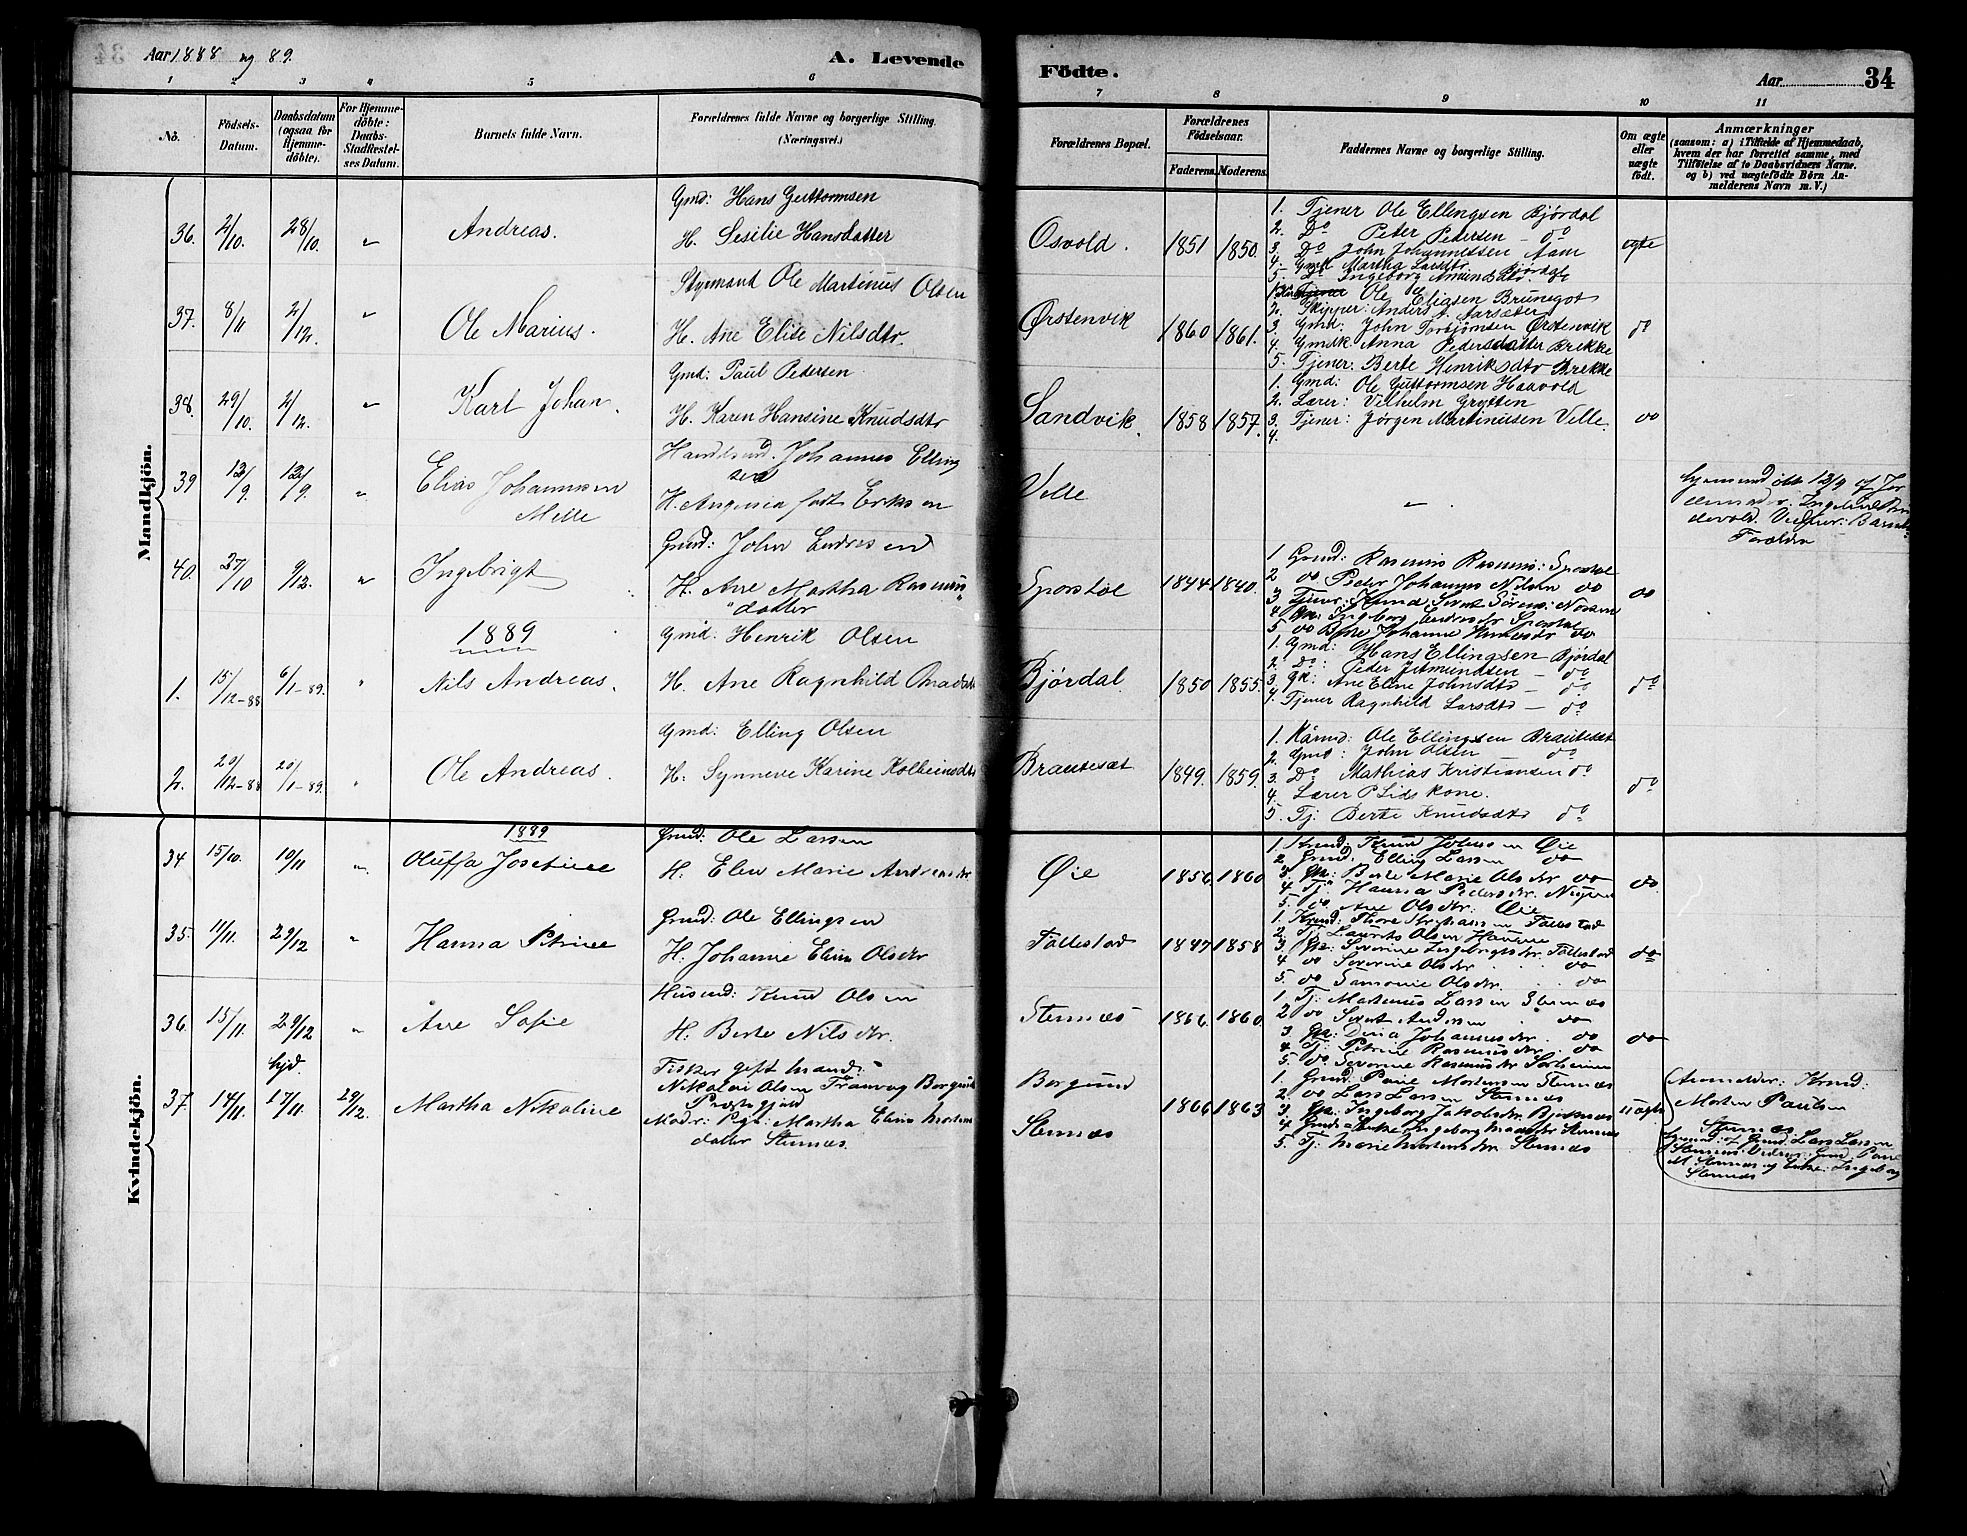 Aar 1888 og 89.
A. Levende
Födte.
Aar
34
1 2 3 4 5 6
7 8 9 10 11
No.
Födsels-Datum.
Daabsdatum (ogsaa for Hjemme-döbte).
For Hjemme-döbte: Daabs-Stadfæstel-ses Datum.
Barnets fulde Navn.
Forældrenes fulde Navne og borgerlige Stilling. (Næringsvei.)
Forældrenes Bopæl.
Forældrenes Födselsaar.
Faderens. Moderens.
Faddernes Navne og borgerlige Stilling.
Om ægte eller uægte födt.
Anmærkninger
(saasom: a) i Tilfælde af Hjemmedaab, hvem der har forrettet samme, med Tilföielse af to Daabsvidners Navne. og b) ved uægtefödte Börn An-melderens Navn m. V.)
Mandkjön.
36. 2/10. 28/10. " Andreas.
Gmd: Hans Guttormsen
H. Sesilie Hansdatter
Osvold. 1851 1850.
1. Tjener Ole Ellingsen Bjørdal
2. Do Peter Pedersen - do
3. Do John Johannessen Aam
4. Gmdk Martha Larsdtr
5. Do Ingeborg Amundsdtr. Bjørdal
ægte
37. 8/11 2/12. " Ole Marius.
Styrmand Ole Martinus Olsen
H. Ane Elise Nilsdtr.
Ørstenvik 1860 1861.
1. Tjener Ole Eliasen Brunegot
2. Skipper: Anders A. Aarsæter
3. Gmd: John Torbjørnsen Ørstenvik
4. Gmdk Anna Pedersdatter Brekke
5. Tjener: Berte Henriksdtr Brekke
do
38. 29/10. 2/12. " Karl Johan.
Gmd: Paul Pedersen
H. Karen Hansine Knudsdtr
Sandvik. 1858 1857.
1. Gmd: Ole Guttormsen Haavold
2. Lærer: Vilhelm Grytten
3. Tjener: Jørgen Martinussen Velle.
4.
do
39 12/9. 12/9. " Elias Johannessen Melle
Johannes Ellingsen
H. Angenia født Eriksen
Velle
"
40. 27/10 9/12. " Ingebrigt
Gmd: John Endresen
H. Ane Martha Rasmusdatter
Sporstøl 1844 1840.
1 Gmd: Rasmus Rasmus: Sporstøl
2 do. Peder Johannes Nilsen do
3 Tjener: Knud Sivert Sørens:
4 Gk: Ingeborg Endresdtr Sporstøl
5 do Berte Johanne do
do
1889
1. 15/12-88 6/1-89. " Nils Andreas.
Gmd: Henrik Olsen
H. Ane Ragnhild
Bjørdal. 1850 1855.
1. Gmd: Hans Ellingsen Bjørdal
2. Do: Peder Jetmundsen - do
3. Gk: Ane Eline Johnsdtr - do
4. Tjener Ragnhild Larsdtr - do
do
2. 20/12-88 20/1-89. " Ole Andreas.
Gmd: Elling Olsen
H. Synneve Karine Kolbeinsdtr
Brautesæt 1849. 1859.
1. Kårmd: Ole Ellingsen Brautesæt
2. Gmd: John Olsen do
3. Do Mathias Kristiansen do
4. Lærer P Lids kone.
5. Tj: Berte Knudsdtr do
do
Kvindekjön.
1889
34 15/10. 19/11 " Oluffa Josefine
Gmd: Ole Larsen
H. Elen Marie Andreasdtr
Øie 1856 1860
1. Kmd: Knud Johnsen Øie
2. Gmd. Elling Larsen do
3. Gk: Berte Marie Olsdtr do
4. Tj: Hanna Pedersdtr.
5. do Ane Olsdtr: Øie
do.
35. 11/11. 29/12 " Hanna Petrine
Gmd: Ole Ellingsen
H. Johanne Elina Olsdtr
Follestad 1847 1858
1. Kmd: Thore Kristiansen Follestad
2. Tj. Laurits Olsen Hovene
3. Gk: Severine Ingebrigtsdtr Follestad
4 do Severine Olsdtr. do
5. do Samonie Olsdtr. do
do
36. 15/11. 29/12 " Ane Sofie
Husmd: Knud Olsen
H. Berte Nilsdtr.
Stennæs 1866. 1860
1. Tj: Martinus Larsen Stennæs
2 do Sivert Andersen do
3 Gk: Dina Johannesdtr. do
4. Tj: Petrine Rasmusdtr. do
5. do Severine Rasmusdtr
do
37. 14/11. hjd. 17/11. 29/12. Martha Nikoline
Fisker gift Mand:
Nikolai Olsen Tranvag Borgund
Præstegjæld
Moder: Pige: Martha Elina Mortensdatter Stennæs.
Borgund
Stennæs
1866 1863
1. Gmd: Paul Mortensen Stennæs
2. do Lars Larsen Stennæs
3. Gk: Ingeborg Jakobsdtr Bjørnæs
4 Gmds Enke Ingeborg Madsdtr Stennæs
5. Tj: Marie Mortensdtr. Stennæs
uægte
Anmelder: Kmd:
Morten Paulsen
Stennæs
Hjemmd: af Gmd: Lars Larsen
Stennæs. Vidner: Gmd Paul
M. Stennæs og Enke: Ingeborg
Stennæs